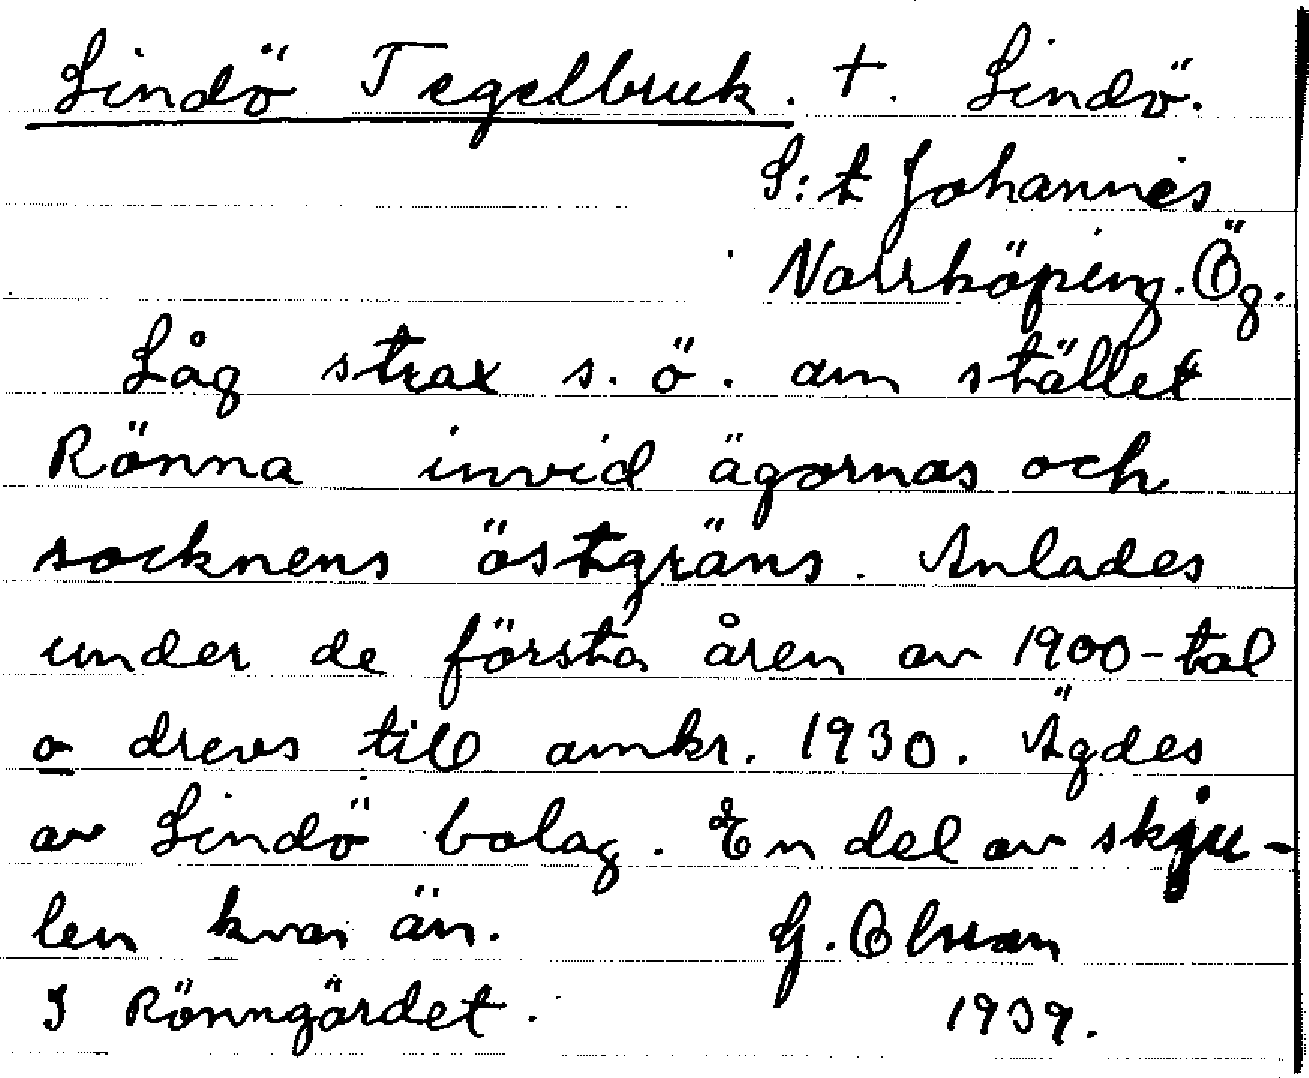 Lindö Tegelbruk. †. Lindö.
S:t Johannes
Norrköping. Ög.
Låg strax s. ö. om stället
Rönna invid ägornas och
socknens östgräns. Anlades
under de första åren av 1900-tal
o drevs till omkr. 1930. Ägdes
av Lindö bolag. En del av skju-
len kvar än. G. Olsson
I Rönngärdet. 1939.